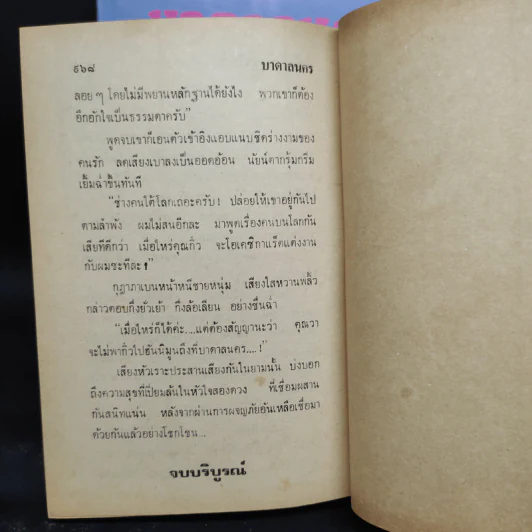 ๙๖๘ บาดาลนคร
ลอย ๆ โดยไม่มีพยานหลักฐานได้ยังไง พวกเขาก็ต้อง
อึกอักใจเป็นธรรมดาครับ”
พูดจบเขาก็เอนตัวเข้าอิงแอบแนบชิดร่างงามของ
คนรัก ลดเสียงเบาลงเป็นออดอ้อน นัยน์ตากรุ้มกริ่ม
เยิ้มฉ่ำขึ้นทันที
“ช่างคนใต้โลกเถอะครับ! ปล่อยให้เขาอยู่กันไป
ตามลำพัง ผมไม่สนอีกละ มาพูดเรื่องคนบนโลกกัน
เสียทีดีกว่า เมื่อไหร่คุณกิ๋ว จะโอเคซิกาแร็ตแต่งงาน
กับผมซะทีละ!
กุฎาภาเบนหน้าหนีชายหนุ่ม เสียงใสหวานพลิ้ว
กล่าวตอบกึ่งยั่วเย้า กึ่งล้อเลียน อย่างชื่นฉ่ำ
“เมื่อไหร่ก็ได้ค่ะ....แต่ต้องสัญญานะว่า คุณวา
จะไม่พากิ๋วไปฮันนิมูนถึงที่บาดาลนคร....!”
เสียงหัวเราะประสานเสียงกันในยามนั้น บ่งบอก
ถึงความสุขที่เปี่ยมล้นในหัวใจสองดวง ที่เชื่อมผสาน
กันสนิทแน่น หลังจากผ่านการผจญภัยอันเหลือเชื่อมา
ด้วยกันแล้วอย่างโชกโชน...
จบบริบูรณ์